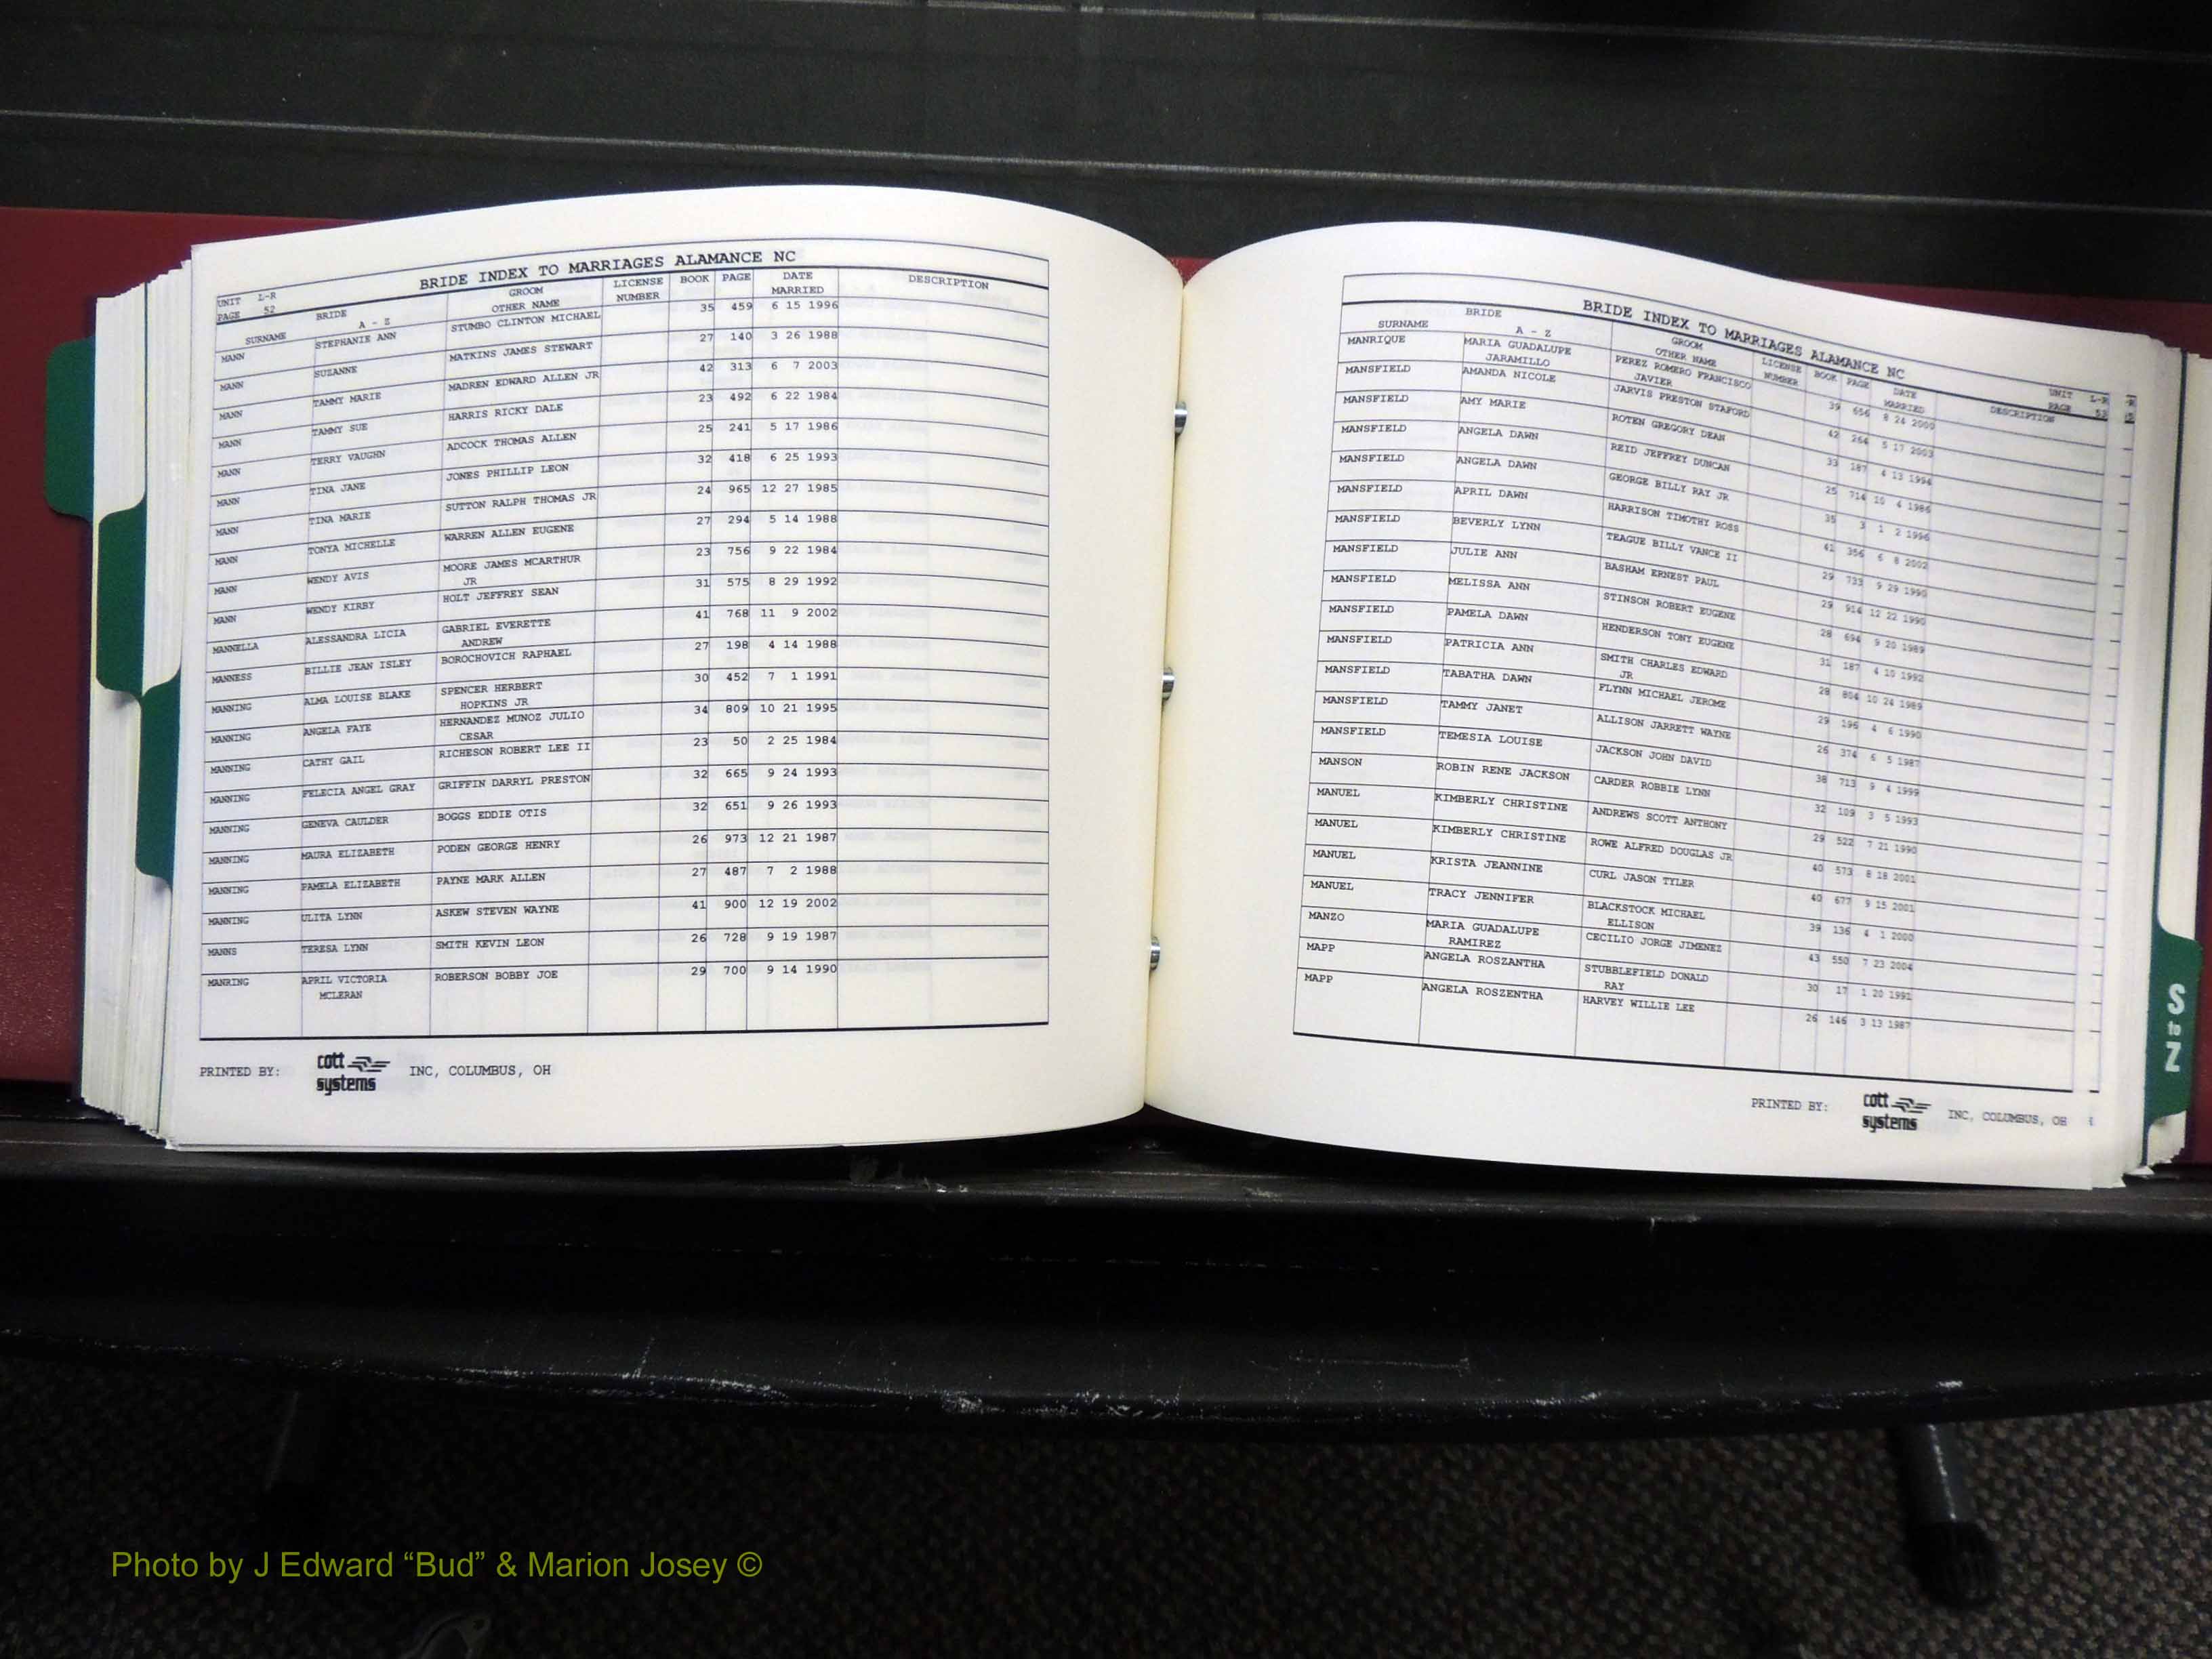 BRIDE INDEX TO MARRIAGES ALAMANCE NC
UNIT L-R
PAGE 52
SURNAME BRIDE A - Z GROOM OTHER NAME LICENSE NUMBER BOOK PAGE DATE MARRIED DESCRIPTION
MANN STEPHANIE ANN STUMBO CLINTON MICHAEL 35 459 6 15 1996
MANN SUZANNE MATKINS JAMES STEWART 27 140 3 26 1988
MANN TAMMY MARIE MADREN EDWARD ALLEN JR 42 313 6 7 2003
MANN TAMMY SUE HARRIS RICKY DALE 23 492 6 22 1984
MANN TERRY VAUGHN ADCOCK THOMAS ALLEN 25 241 5 17 1986
MANN TINA JANE JONES PHILLIP LEON 32 418 6 25 1993
MANN TINA MARIE SUTTON RALPH THOMAS JR 24 965 12 27 1985
MANN TONYA MICHELLE WARREN ALLEN EUGENE 27 294 5 14 1988
MANN WENDY AVIS MOORE JAMES MCARTHUR 23 756 9 22 1984
JR
MANN WENDY KIRBY HOLT JEFFREY SEAN 31 575 8 29 1992
MANNELLA ALESSANDRA LICIA GABRIEL EVERETTE 41 768 11 9 2002
ANDREW
MANNESS BILLIE JEAN ISLEY BOROCHOVICH RAPHAEL 27 198 4 14 1988
MANNING ALMA LOUISE BLAKE SPENCER HERBERT 30 452 7 1 1991
HOPKINS JR
MANNING ANGELA FAYE HERNANDEZ MUNOZ JULIO 34 809 10 21 1995
CESAR
MANNING CATHY GAIL RICHESON ROBERT LEE II 23 50 2 25 1984
MANNING FELECIA ANGEL GRAY GRIFFIN DARRYL PRESTON 32 665 9 24 1993
MANNING GENEVA CAULDER BOGGS EDDIE OTIS 32 651 9 26 1993
MANNING MAURA ELIZABETH PODEN GEORGE HENRY 26 973 12 21 1987
MANNING PAMELA ELIZABETH PAYNE MARK ALLEN 27 487 7 2 1988
MANNING ULITA LYNN ASKEW STEVEN WAYNE 41 900 12 19 2002
MANNS TERESA LYNN SMITH KEVIN LEON 26 728 9 19 1987
MANRING APRIL VICTORIA ROBERSON BOBBY JOE 29 700 9 14 1990
MCLERAN
PRINTED BY: cott systems INC, COLUMBUS, OH
BRIDE INDEX TO MARRIAGES ALAMANCE NC
UNIT L-R
PAGE 53
SURNAME BRIDE A - Z GROOM OTHER NAME LICENSE NUMBER BOOK PAGE DATE MARRIED DESCRIPTION
MANRIQUE MARIA GUADALUPE PEREZ ROMERO FRANCISCO 39 656 8 24 2000
JARAMILLO JAVIER
MANSFIELD AMANDA NICOLE JARVIS PRESTON STAFORD 42 264 5 17 2003
MANSFIELD AMY MARIE ROTEN GREGORY DEAN 33 187 4 13 1994
MANSFIELD ANGELA DAWN REID JEFFREY DUNCAN 25 714 10 4 1986
MANSFIELD ANGELA DAWN GEORGE BILLY RAY JR 35 3 1 2 1996
MANSFIELD APRIL DAWN HARRISON TIMOTHY ROSS 41 356 6 8 2002
MANSFIELD BEVERLY LYNN TEAGUE BILLY VANCE II 29 733 9 29 1990
MANSFIELD JULIE ANN BASHAM ERNEST PAUL 29 914 12 22 1990
MANSFIELD MELISSA ANN STINSON ROBERT EUGENE 28 694 9 20 1989
MANSFIELD PAMELA DAWN HENDERSON TONY EUGENE 31 187 4 10 1992
MANSFIELD PATRICIA ANN SMITH CHARLES EDWARD 28 804 10 24 1989
JR
MANSFIELD TABATHA DAWN FLYNN MICHAEL JEROME 29 196 4 6 1990
MANSFIELD TAMMY JANET ALLISON JARRETT WAYNE 26 374 6 5 1987
MANSFIELD TEMESIA LOUISE JACKSON JOHN DAVID 38 713 9 4 1999
MANSON ROBIN RENE JACKSON CARDER ROBBIE LYNN 32 109 3 5 1993
MANUEL KIMBERLY CHRISTINE ANDREWS SCOTT ANTHONY 29 522 7 21 1990
MANUEL KIMBERLY CHRISTINE ROWE ALFRED DOUGLAS JR 40 573 8 18 2001
MANUEL KRISTA JEANNINE CURL JASON TYLER 40 677 9 15 2001
MANUEL TRACY JENNIFER BLACKSTOCK MICHAEL 39 136 4 1 2000
ELLISON
MANZO MARIA GUADALUPE CECILIO JORGE JIMENEZ 43 550 7 23 2004
RAMIREZ
MAPP ANGELA ROSZANTHA STUBBLEFIELD DONALD 30 17 1 20 1991
RAY
MAPP ANGELA ROSZENTHA HARVEY WILLIE LEE 26 146 3 13 1987
PRINTED BY: cott systems INC, COLUMBUS, OH
S to Z
Photo by J Edward “Bud” & Marion Josey ©